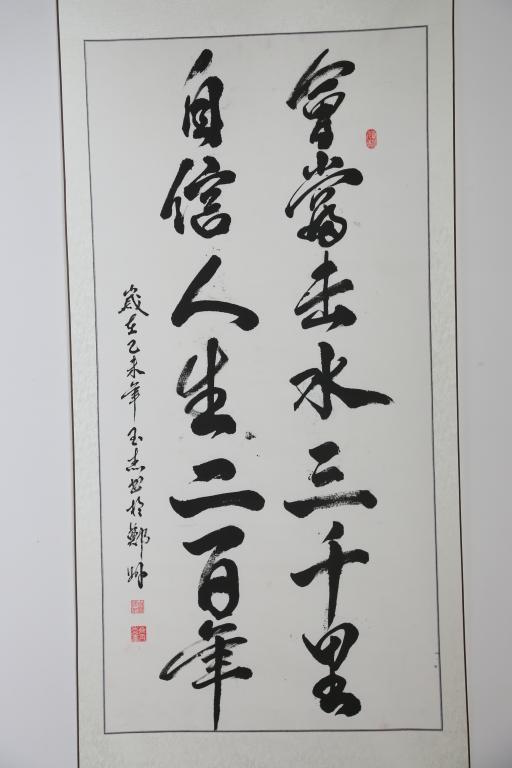 會當击水三千里
自信人生二百年
歲在乙未年玉杰书於鄭州